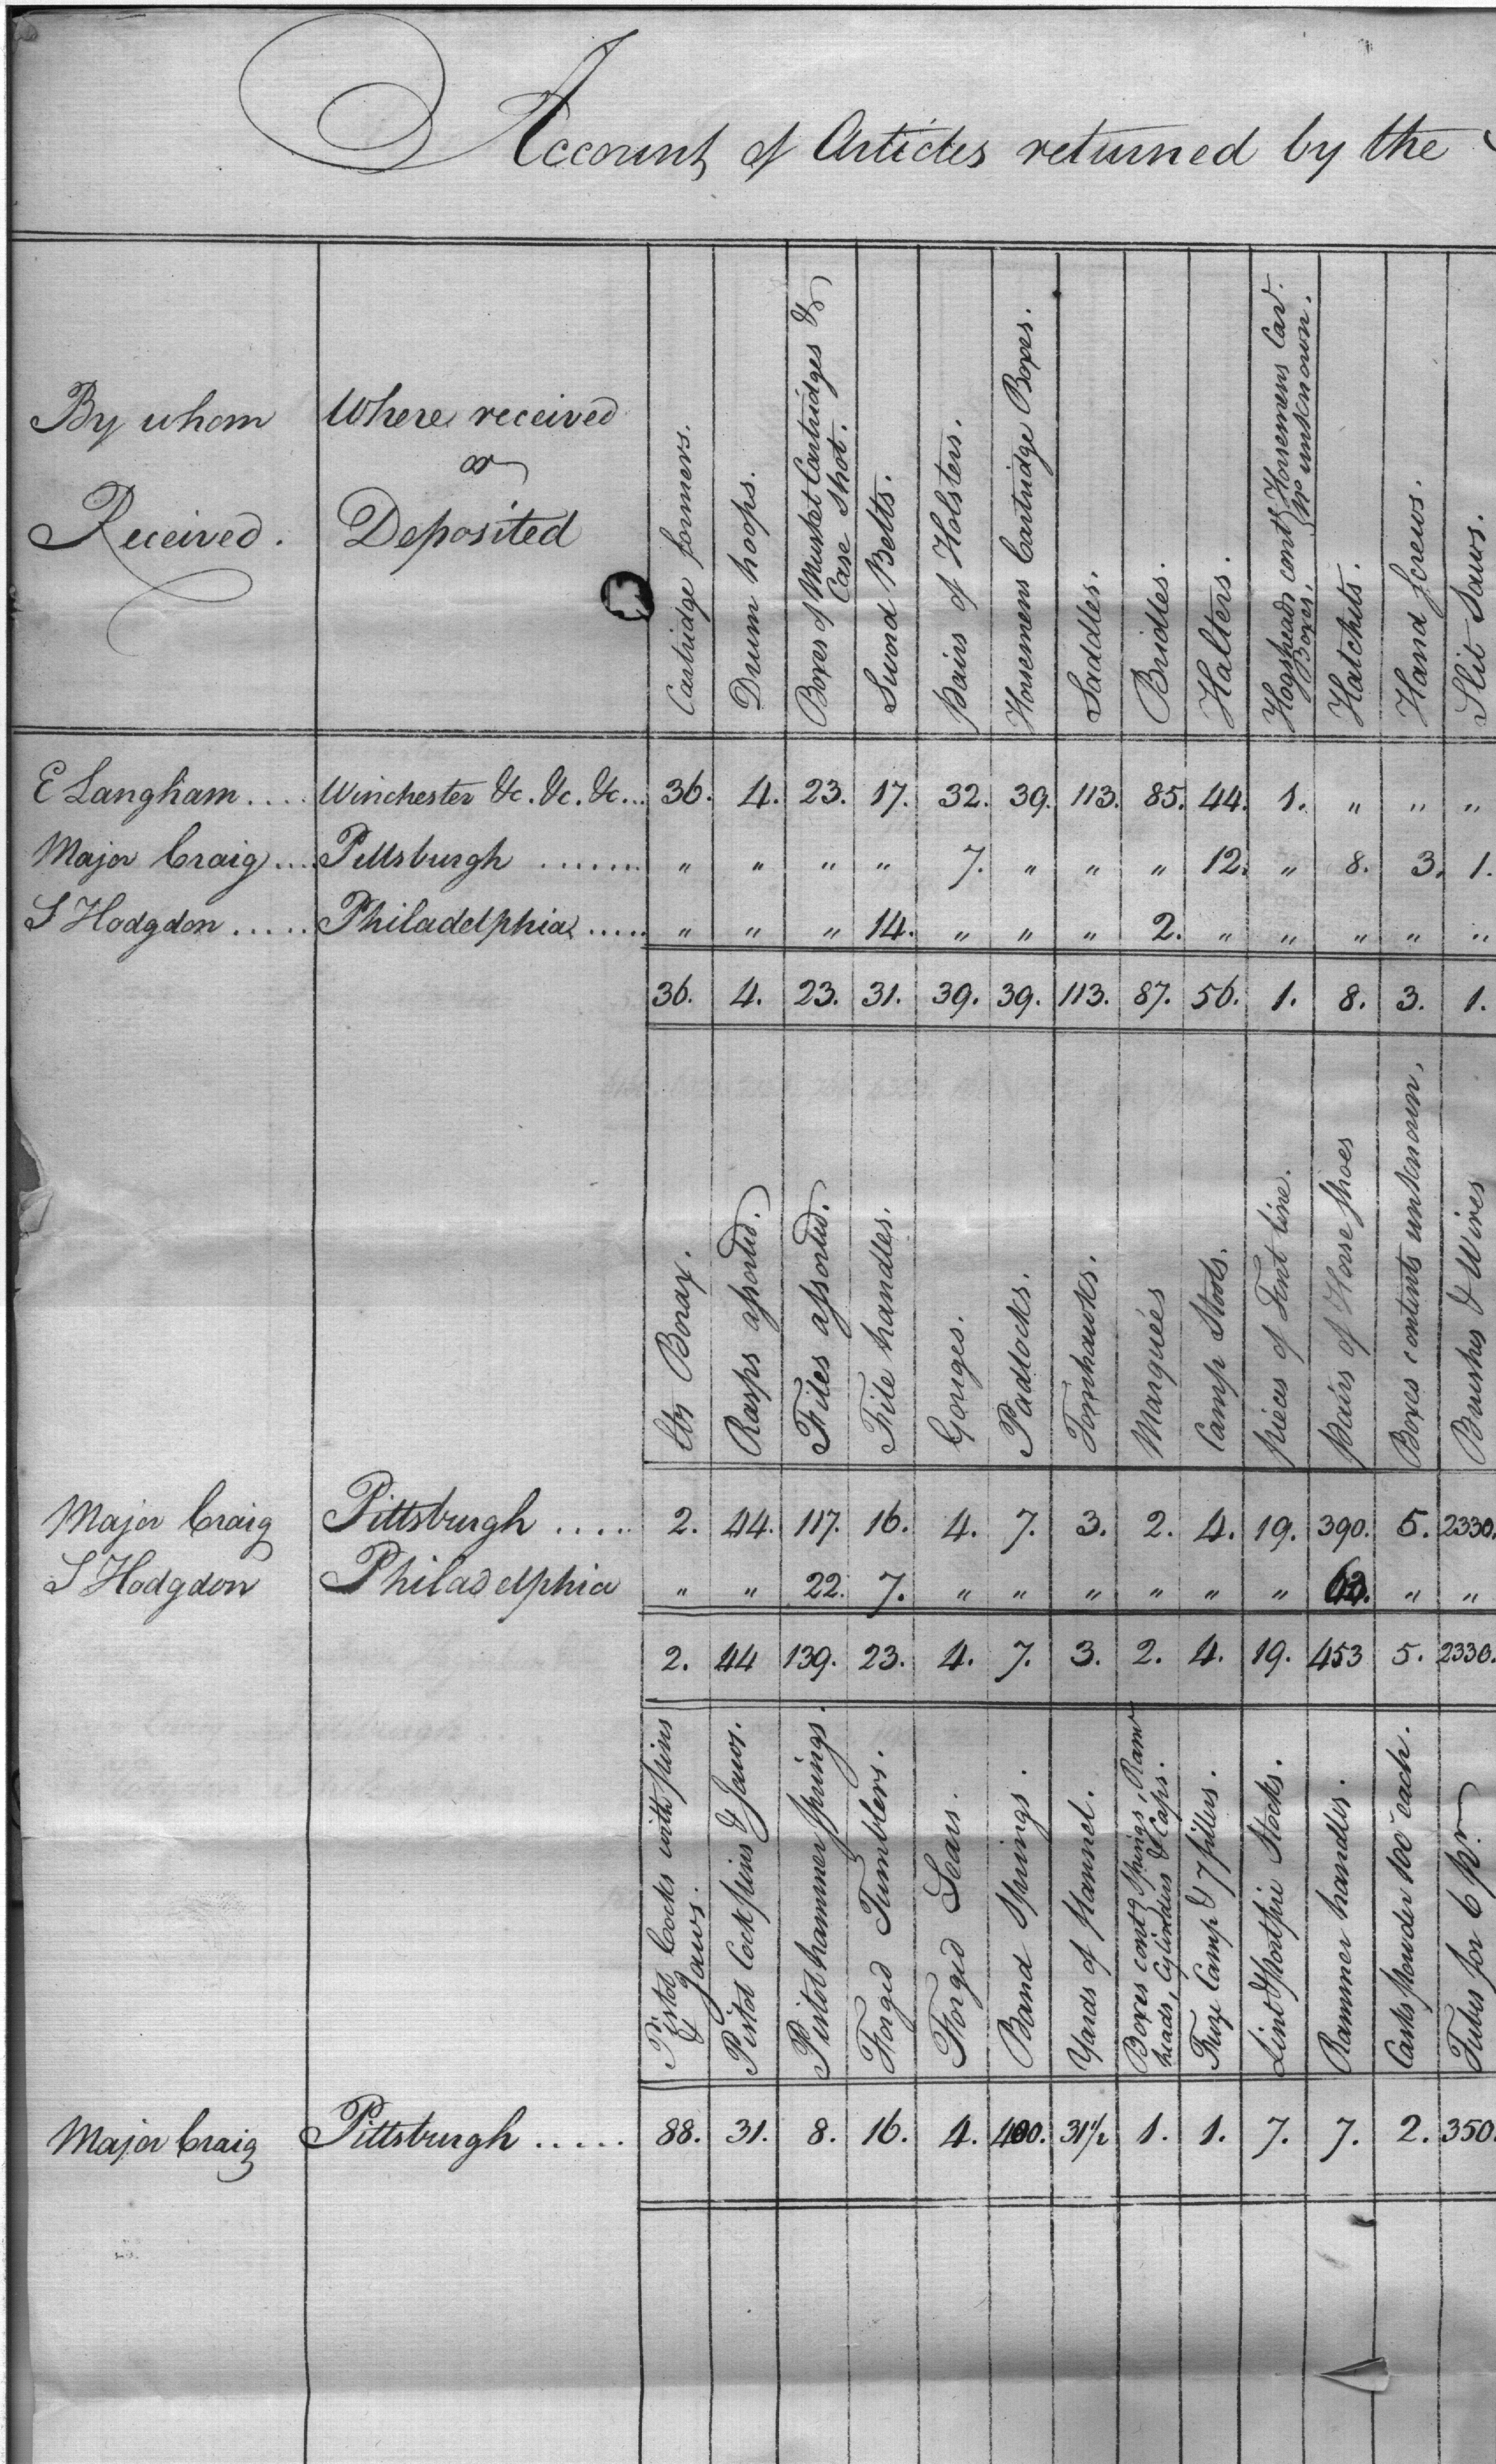 Account of Articles returned by the
By whom
Received.
Where received
or
Deposited
Cartridge formers.
Drum hoops.
Boxes of Musket Cartridges &
Case Shot.
Sword Belts.
pairs of Holsters.
Horsemens Cartridge Boxes.
Saddles.
Bridles.
Halters.
Hogsheads cont^g Horsemens Car^d.
Boxes, N^o unknown.
Hatchets.
Hand screws.
Slit Saws.
E Langham.... Winchester &c. &c. &c... 36. 4. 23. 17. 32. 39. 113. 85. 44. 1. " " "
Major Craig.... Pittsburgh ....... " " " " 7. " " " 12. " 8. 3. 1.
S Hodgdon ..... Philadelphia ..... " " " 14. " " " 2. " " " " "
36. 4. 23. 31. 39. 39. 113. 87. 56. 1. 8. 3. 1.
lbs Borax.
Rasps assorted.
Files assorted.
File handles.
Gouges.
Padlocks.
Tomhawks.
Marquées
Camp Stools.
pieces of Tent line.
pairs of Horse shoes
Boxes contents unknown,
Brushes & Wires
Major Craig Pittsburgh .... 2. 44. 117. 16. 4. 7. 3. 2. 4. 19. 390. 5. 2330.
S Hodgdon Philadelphia " " 22. 7. " " " " " " 63. " "
2. 44 139. 23. 4. 7. 3. 2. 4. 19. 453 5. 2330.
Pistol Cocks with pins
& Jaws.
Pistol Cock pins & Jaws.
Pistol hammer springs.
Forged Tumblers.
Forged Sears.
Band Springs.
Yards of flannel.
Boxes cont^g Springs, Ram
heads, Cylinders & Caps.
Fuze Camp & 7 fillers.
Lint & Portfire Stocks.
Rammer handles.
Casks Powder 100 each.
Tubes for 6 p^r
Major Craig Pittsburgh ..... 88. 31. 8. 16. 4. 400. 31½ 1. 1. 7. 7. 2. 350.